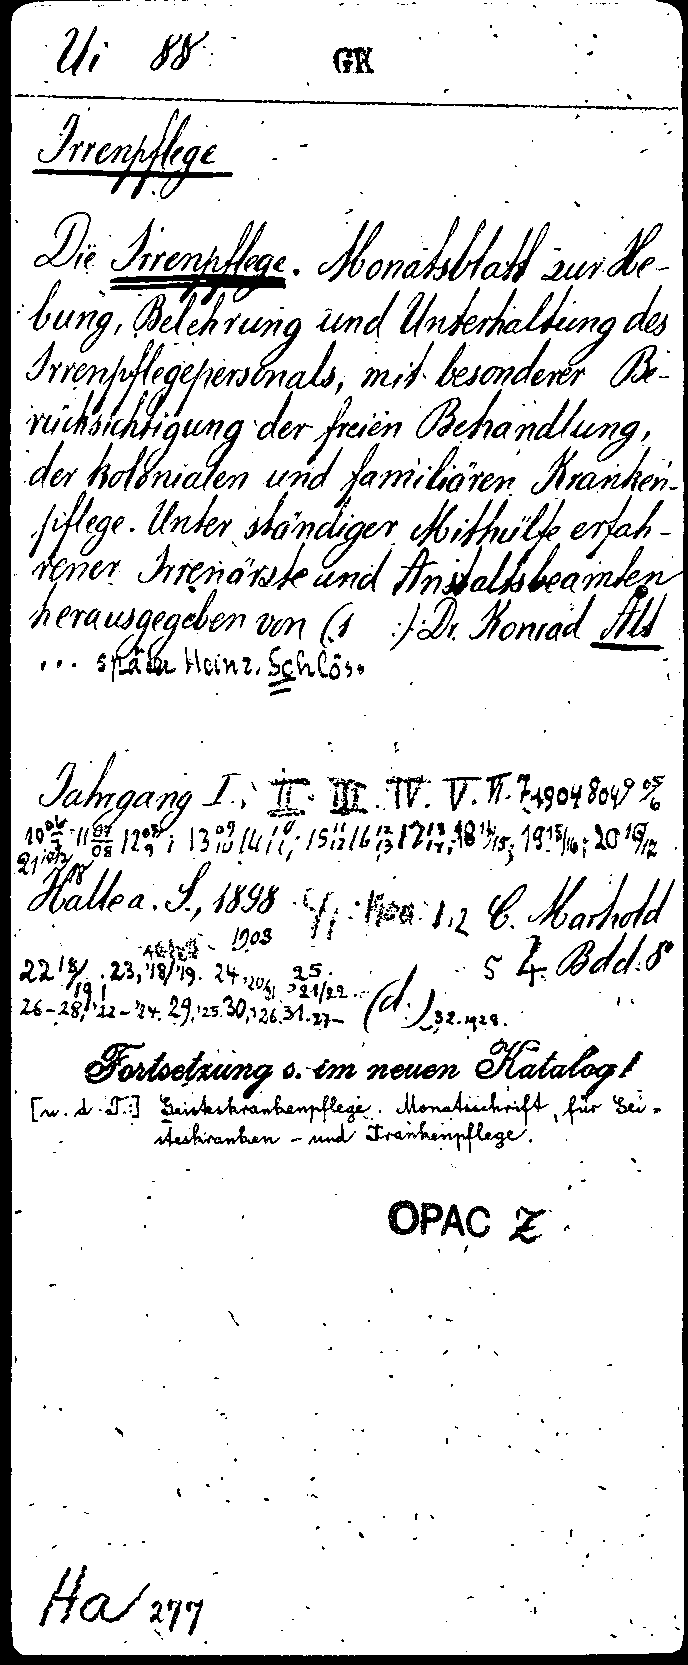 Ui 88 GK
Irrenpflege
Die Irrenpflege. Monatsblatt zur He-
bung, Belehrung und Unterhaltung des
Irrenpflegepersonals, mit besonderer Be-
rücksichtigung der freien Behandlung,
der kolonialen und familiären Kranken-
pflege. Unter ständiger Mithülfe erfah-
rener Irrenärste und Anstaltsbeamten
herausgegeben von (1 :) Dr. Konrad Alt
... später Heinr. Schlös.
Jahrgang I., II. III. IV. V. VI. 7. 1904 8 04 9 05/6
10 06/7 11 07/08 12 08/9; 13 09/10 14 10/11; 15 11/12 16 12/13 17 13/14; 18 14/15; 19 15/16; 20 16/17
21 17/18
Halle a. S., 1898 1,2 C. Marhold
1903
5 4 Bdd. 8°
22 18/19. 23, '18/'19. 24, '20/21 25. 21/22
26-28, '22-'24. 29, '25. 30, '26. 31. 27- (d. ) 32. 1928.
Fortsetzung s. im neuen Katalog!
[u. d. T.:] Geisteskrankenpflege. Monatsschrift für Gei-
steskranken- und Krankenpflege.
OPAC Z
Ha/277